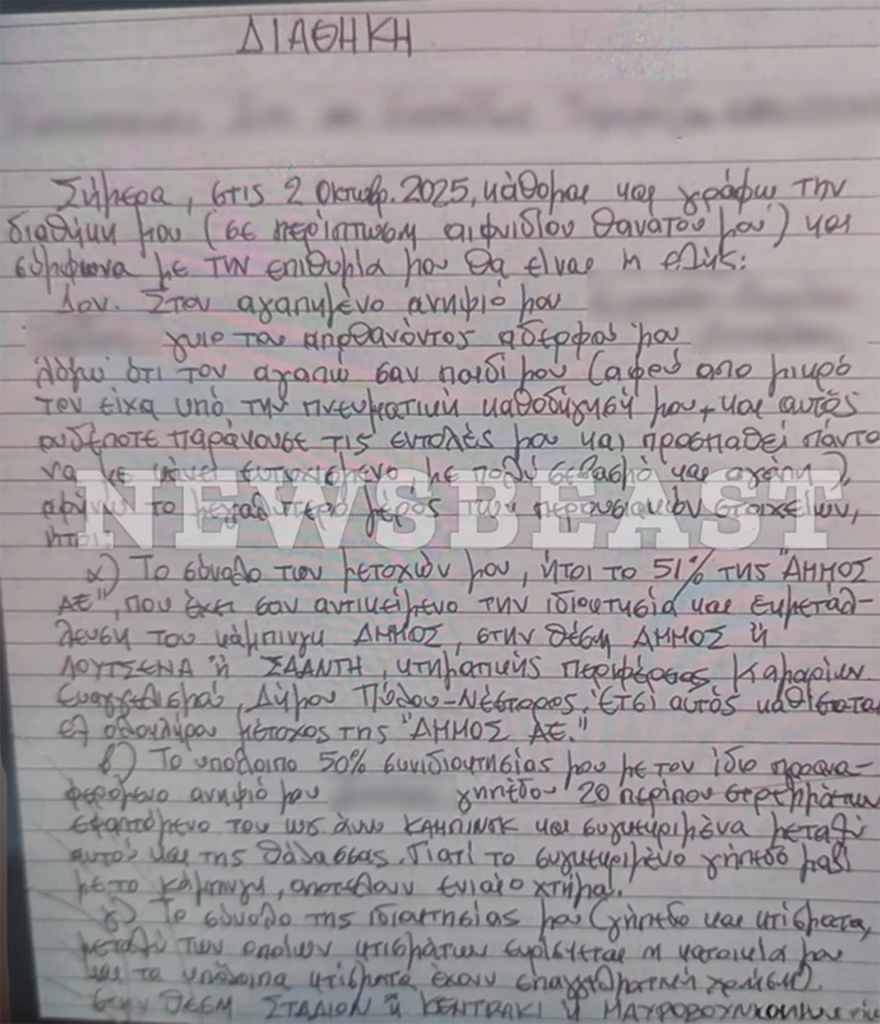 ΔΙΑΘΗΚΗ
Σήμερα, στις 2 Οκτωβρ. 2025, κάθομαι και γράφω την
διαθήκη μου (σε περίπτωση αιφνιδίου θανάτου μου) και
σύμφωνα με την επιθυμία μου θα είναι η εξής:
1ον. Στον αγαπημένο ανηψιό μου
γυιο του αποθανόντος αδερφού μου
λόγω ότι τον αγαπώ σαν παιδί μου (αφού απο μικρό
τον είχα υπό την πνευματική καθοδήγησή μου + και αυτός
ουδέποτε παράκουσε τις εντολές μου και προσπαθεί πάντα
να με κάνει ευτυχισμένο, με πολύ σεβασμό και αγάπη),
αφήνω το μεγαλύτερο μέρος των περουσιακών στοιχείων,
ήτοι:
NEWSBEAST
α) Το σύνολο των μετοχών μου, ήτοι το 51% της "ΑΜΜΟΣ
ΑΕ", που έχει σαν αντικείμενο την ιδιοκτησία και εκμετάλ-
λευση του κάμπινγκ ΑΜΜΟΣ, στην θέση ΑΜΜΟΣ ή
ΛΟΥΤΣΕΝΑ ή ΣΑΛΝΤΗ, κτηματικής περιφέρειας Καμαρίων
Ευαγγελισμού, Δήμου Πύλου-Νέστορος. Έτσι αυτός καθίσταται
εξ ολοκλήρου μέτοχος της "ΑΜΜΟΣ ΑΕ."
β) Το υπόλοιπο 50% συνιδιοκτησίας μου με τον ίδιο προανα-
φερόμενο ανηψιό μου γηπέδου 20 περίπου στρεμμάτων
εφαπτόμενο του ως άνω ΚΑΜΠΙΝΓΚ και συγκεκριμένα μεταξύ
αυτού και της θάλασσας. Γιατί το συγκεκριμένο γήπεδο μαζί
με το κάμπινγκ, αποτελούν ενιαίο κτήμα.
γ) Το σύνολο της ιδιοκτησίας μου (γήπεδο και κτίσματα,
μεταξύ των οποίων κτισμάτων ευρίσκεται η κατοικία μου
και τα υπόλοιπα κτίσματα έχουν επαγγελματική χρήση).
στην θέση ΣΤΑΔΙΟΝ ή ΚΕΝΤΡΑΚΙ ή